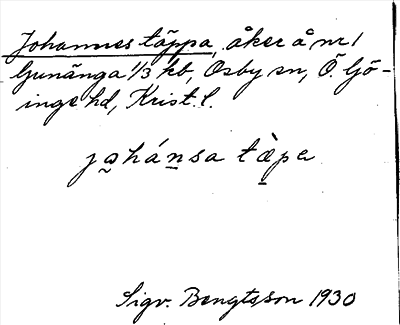 Johannes täppa, åker å nr 1
Gunånga 1/3 kb, Osby sn, Ö. Gö-
inge hd, Krist. l.
johánsa tæ̀pa
Sigv. Bengtsson 1930